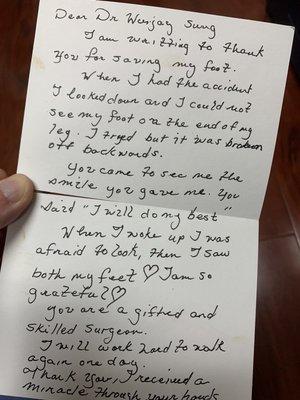 Dear Dr Wenjay Sung
I am writting to thank
you for saving my foot.
When I had the accident
I looked down and I could not
see my foot on the end of my
leg. I tryed but it was broken
off backwords.
You came to see me the
smile you gave me. You
Said "I will do my best"
When I woke up I was
afraid to look, then I saw
both my feet ♡ I am so
grateful ♡
you are a gifted and
skilled surgeon.
I will work hard to walk
again one day.
Thank you, I received a
miracle through your hands